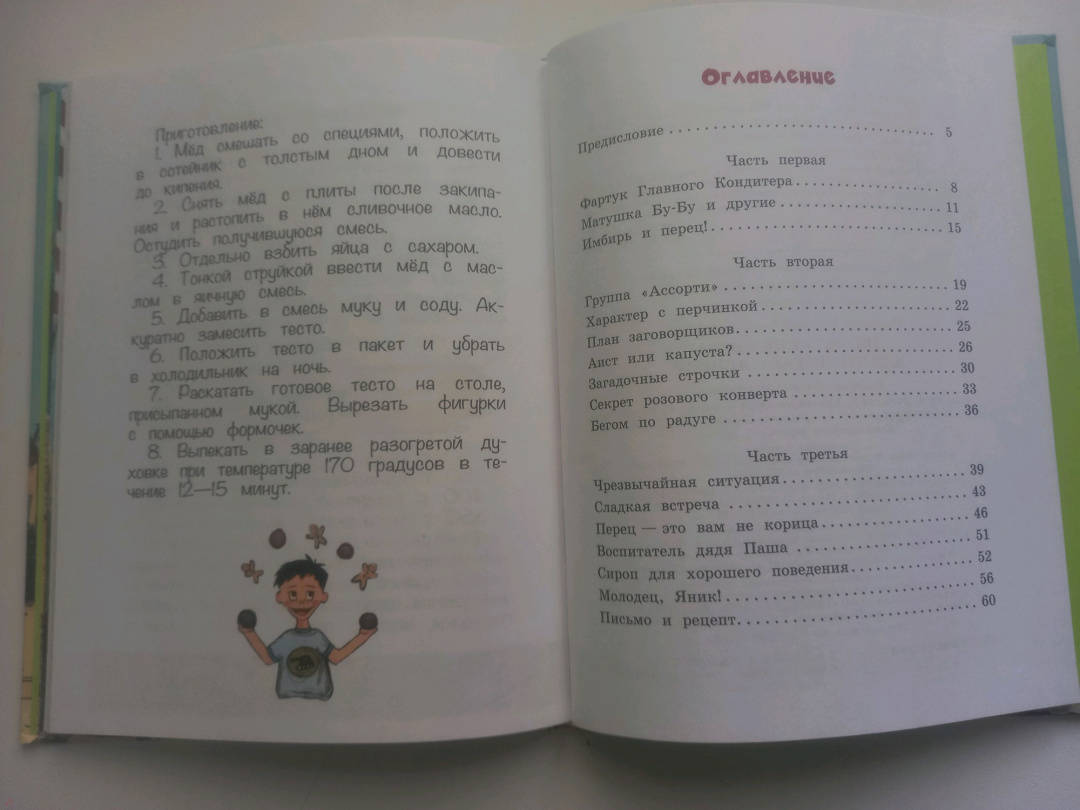 Приготовление:
1. Мёд смешать со специями, положить
в сотейник с толстым дном и довести
до кипения.
2. Снять мёд с плиты после закипа-
ния и растопить в нём сливочное масло.
Остудить получившуюся смесь.
3. Отдельно взбить яйца с сахаром.
4. Тонкой струйкой ввести мёд с мас-
лом в яичную смесь.
5. Добавить в смесь муку и соду. Ак-
куратно замесить тесто.
6. Положить тесто в пакет и убрать
в холодильник на ночь.
7. Раскатать готовое тесто на столе,
присыпанном мукой. Вырезать фигурки
с помощью формочек.
8. Выпекать в заранее разогретой ду-
ховке при температуре 170 градусов в те-
чение 12—15 минут.
Оглавление
Предисловие 5
Часть первая
Фартук Главного Кондитера 8
Матушка Бу-Бу и другие 11
Имбирь и перец! 15
Часть вторая
Группа «Ассорти» 19
Характер с перчинкой 22
План заговорщиков 25
Аист или капуста? 26
Загадочные строчки 30
Секрет розового конверта 33
Бегом по радуге 36
Часть третья
Чрезвычайная ситуация 39
Сладкая встреча 43
Перец — это вам не корица 46
Воспитатель дядя Паша 51
Сироп для хорошего поведения 52
Молодец, Яник! 56
Письмо и рецепт 60